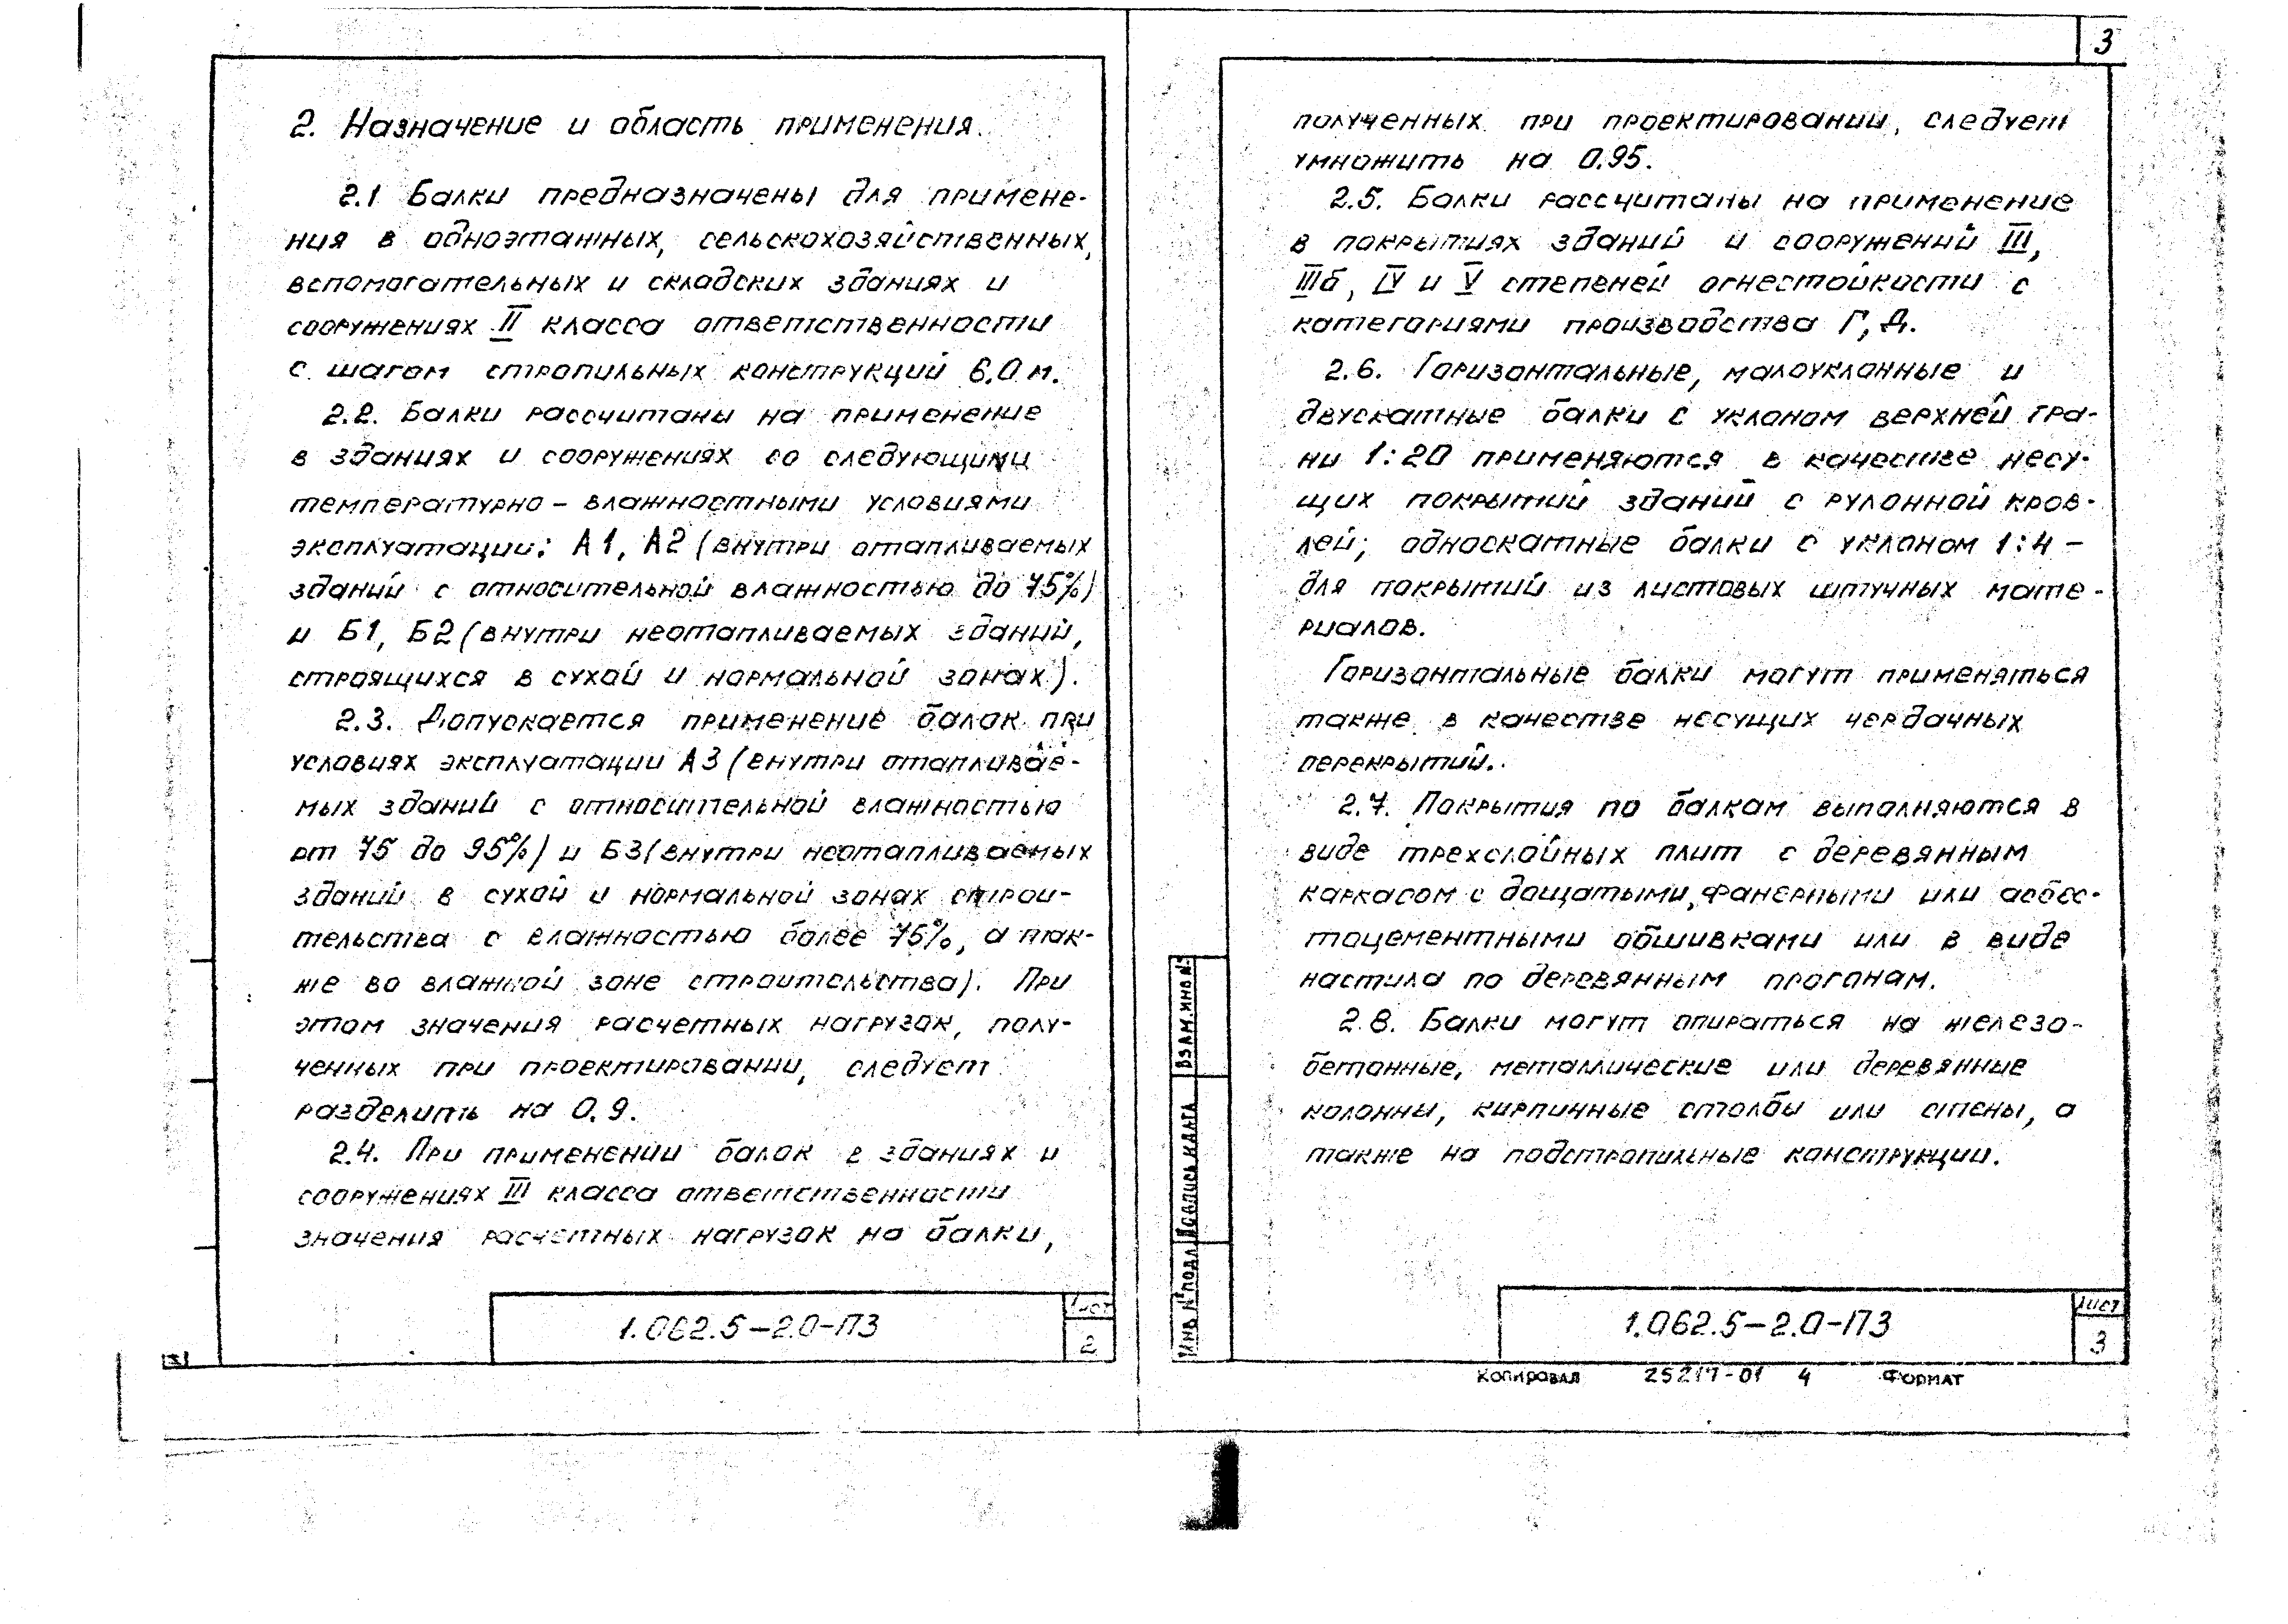 2. Назначение и область применения.
2.1 Балки предназначены для примене-
ния в одноэтажных, сельскохозяйственных,
вспомогательных и складских зданиях и
сооружениях II класса ответственности
с шагом стропильных конструкций 6.0 м.
2.2. Балки рассчитаны на применение
в зданиях и сооружениях со следующими
температурно – влажностными условиями
эксплуатации: А1, А2 (внутри отапливаемых
зданий с относительной влажностью до 75%)
и Б1, Б2 (внутри неотапливаемых зданий,
строящихся в сухой и нормальной зонах).
2.3. Допускается применение балок при
условиях эксплуатации А3 (внутри отапливае-
мых зданий с относительной влажностью
от 75 до 95%) и Б3 (внутри неотапливаемых
зданий в сухой и нормальной зонах строи-
тельства с влажностью более 75%, а так-
же во влажной зоне строительства). При
этом значения расчетных нагрузок, полу-
ченных при проектировании, следует
разделить на 0.9.
2.4. При применении балок в зданиях и
сооружениях III класса ответственности
значения расчетных нагрузок на балки,
1.062.5–2.0–ПЗ
Лист
2
3
полученных при проектировании, следует
умножить на 0.95.
2.5. Балки рассчитаны на применение
в покрытиях зданий и сооружений III,
IIIб, IV и V степеней огнестойкости с
категориями производства Г, Д.
2.6. Горизонтальные, малоуклонные и
двускатные балки с уклоном верхней гра-
ни 1:20 применяются в качестве несу-
щих покрытий зданий с рулонной кров-
лей; односкатные балки с уклоном 1:4 –
для покрытий из листовых штучных мате-
риалов.
Горизонтальные балки могут применяться
также в качестве несущих чердачных
перекрытий.
2.7. Покрытия по балкам выполняются в
виде трехслойных плит с деревянным
каркасом с дощатыми, фанерными или асбес-
тоцементными обшивками или в виде
настила по деревянным прогонам.
2.8. Балки могут опираться на железо-
бетонные, металлические или деревянные
колонны, кирпичные столбы или стены, а
также на подстропильные конструкции.
Взам. инв. №
Подпись и дата
Инв. № подл.
1.062.5–2.0–ПЗ
Лист
3
Копировал 25217-01 4 Формат